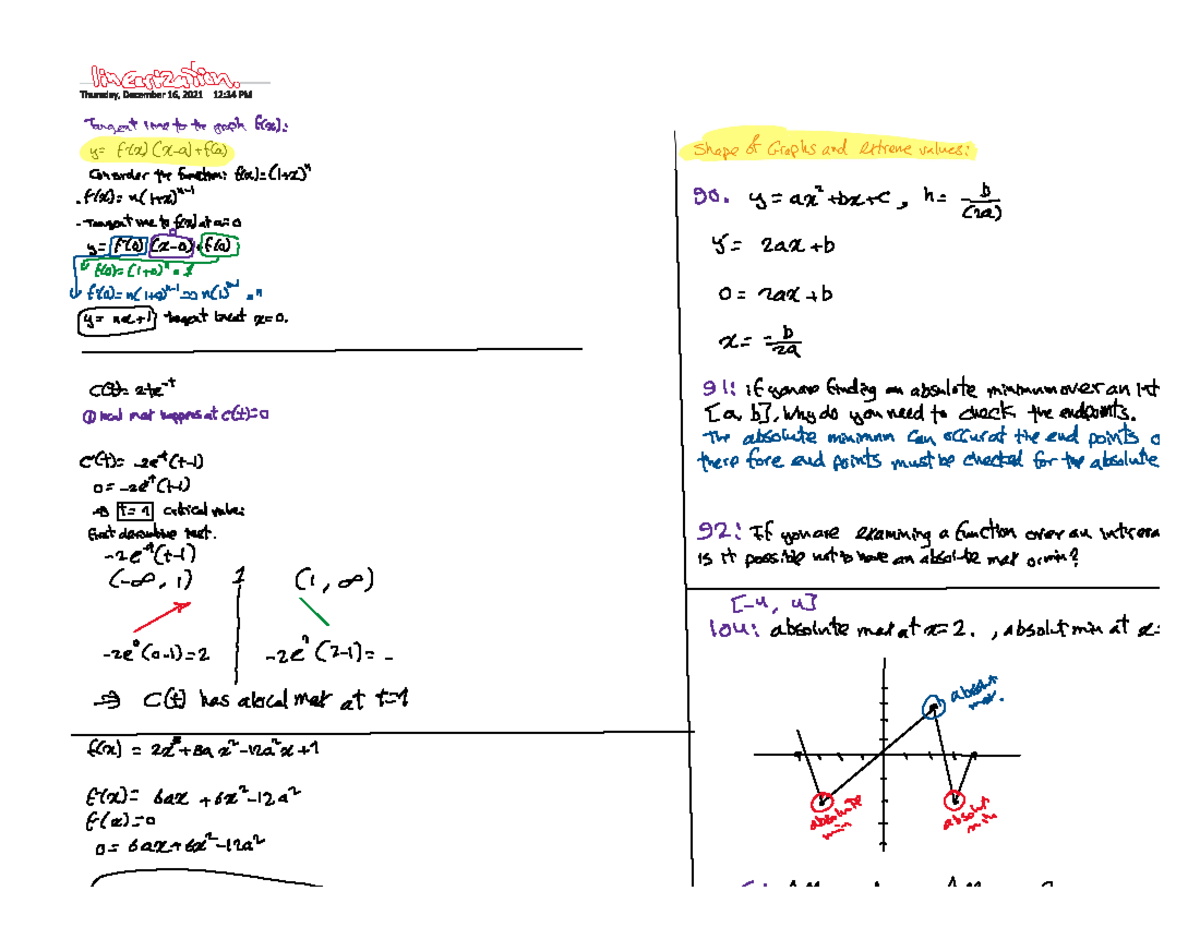 linearization.
Thursday, December 16, 2021 12:34 PM
Tangent line to the graph f(x):
y = f'(x) (x-a) + f(a)
Consider the function: f(x) = (1+x)^n
. f'(x) = n(1+x)^n-1
- Tangent line to f(x) at a=0
y = f'(0) (x-0) + f(0)
f(0) = (1+0)^n = 1
f'(0) = n(1+0)^n-1 => n(1)^n-1 = n
y = nx+1 tangent line at x=0.
C(t) = 2te^-t
① local max happens at c'(t)=0
C'(t) = -2e^-t (t-1)
0 = -2e^-t (t-1)
=> t=1 critical value
first derivative test.
-2e^-t (t-1)
(-∞, 1) 1 (1, ∞)
-2e^0 (0-1) = 2 -2e^2 (2-1) = -
=> C(t) has a local max at t=1
f(x) = 2x^3 + 3a x^2 - 12a^2 x + 1
f'(x) = 6ax + 6x^2 - 12a^2
f'(x) = 0
0 = 6ax + 6x^2 - 12a^2
Shape of Graphs and extreme values:
90. y = ax^2 + bx + c, h = - b/(2a)
y' = 2ax + b
0 = 2ax + b
x = -b/2a
91: if you are finding an absolute minimum over an int
[a, b], why do you need to check the endpoints.
The absolute minimum can occur at the end points o
there fore end points must be checked for the absolute
92: If you are examining a function over an interva
is it possible not to have an absolute max or min?
[-4, 4]
104: absolute max at x=2. , absolut min at x=
absolut max.
absolute min
absolut min